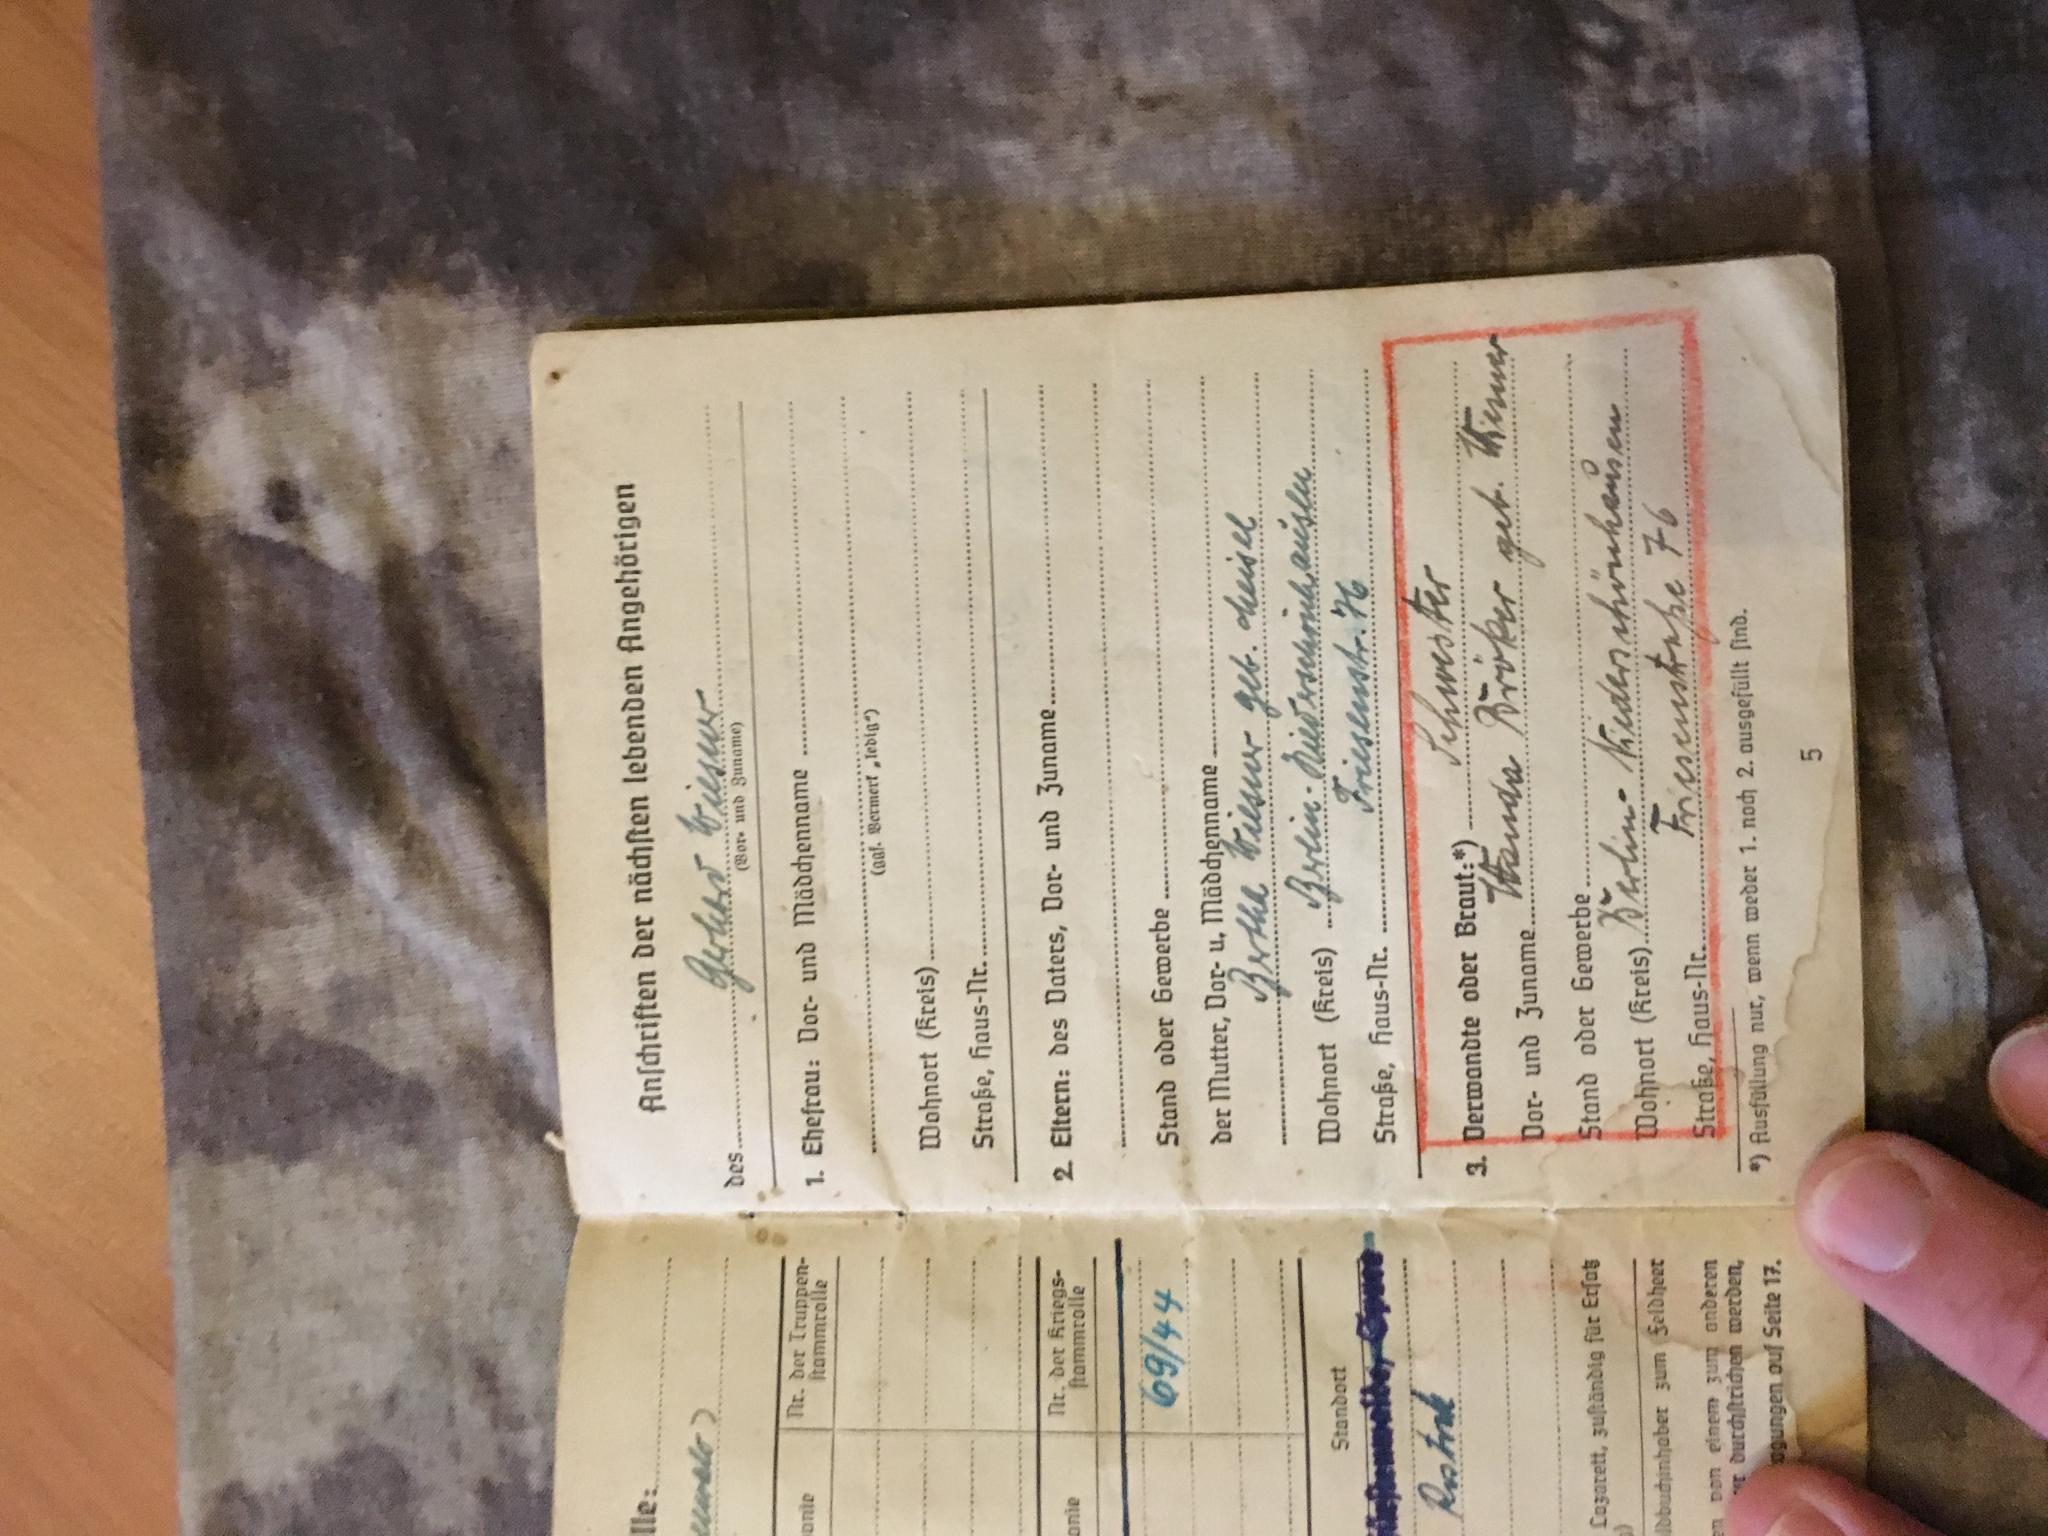 lle:
Nr. der Truppen-
stammrolle
Nr. der Kriegs-
stammrolle
69/44
Standort
Rostock
Lazarett, zuständig für Ersatz
ldbuchinhaber zum Feldheer
von einem zum anderen
durchstrichen werden,
agungen auf Seite 17.
Anschriften der nächsten lebenden Angehörigen
des Gerhard Wiesner
(Vor- und Zuname)
1. Ehefrau: Vor- und Mädchenname
(ggf. Vermerk „ledig")
Wohnort (Kreis)
Straße, Haus-Nr.
2. Eltern: des Vaters, Vor- und Zuname
Stand oder Gewerbe
der Mutter, Vor- u. Mädchenname
Bertha Wiesner geb. Meisel
Wohnort (Kreis) Berlin-Niederschönhausen
Straße, Haus-Nr. Friesenstr. 76
3. Verwandte oder Braut:*) Schwester
Vor- und Zuname Wanda Bröker geb. Wiesner
Stand oder Gewerbe
Wohnort (Kreis) Berlin-Niederschönhausen
Straße, Haus-Nr. Friesenstraße 76
*) Ausfüllung nur, wenn weder 1. noch 2. ausgefüllt sind.
5